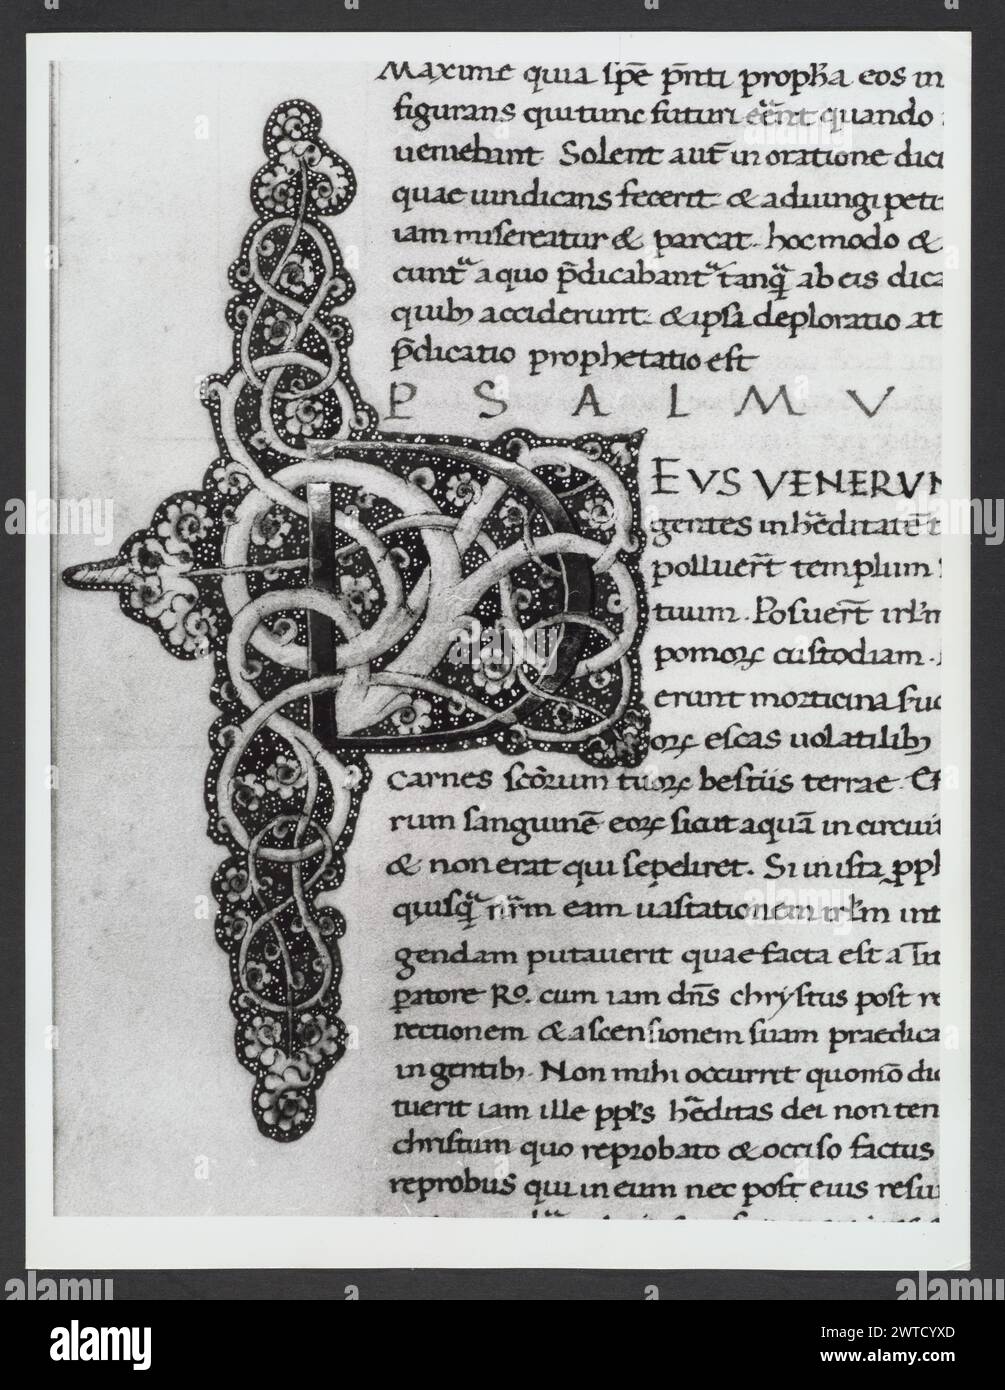 Maxime quia spē p̄nti propħa eos in
figurans qui tunc futuri eēnt quando
ueniebant. Solent aut in oratione dici
quae uindicans fecerit & adiungi peti
iam misereatur & parcat. hoc modo &
cunt a quo p̄dicabant tanq̄ ab eis dica
quib accideruntt & ipsa deploratio at
p̄dicatio prophetatio est
P S A L M V
D EVS VENERVN
gentes in hēditatē t
polluert templum
tuum. Posuert irlm
pomoꝝ custodiam.
erunt morticina suo
oꝝ escas uolatilib
carnes scōrum tuoꝝ bestiis terrae. Ef
rum sanguinē eoꝝ sicut aquā in circui
& non erat qui sepeliret. Si in ista pph
quisq̄ nr̄m eam uastationem irlm int
gendam putauerit quae facta est a Tu
patore Ro. cum iam dn̄s chrystus post re
rectionem & ascensionem suam praedica
in gentib. Non mihi occurrit quomō dic
tuerit iam ille ppls hēditas dei non ten
christum quo reprobato & occiso factus
reprobus qui in eum nec post eius resu
alamy
Image ID: 2WTCYXD
www.alamy.com